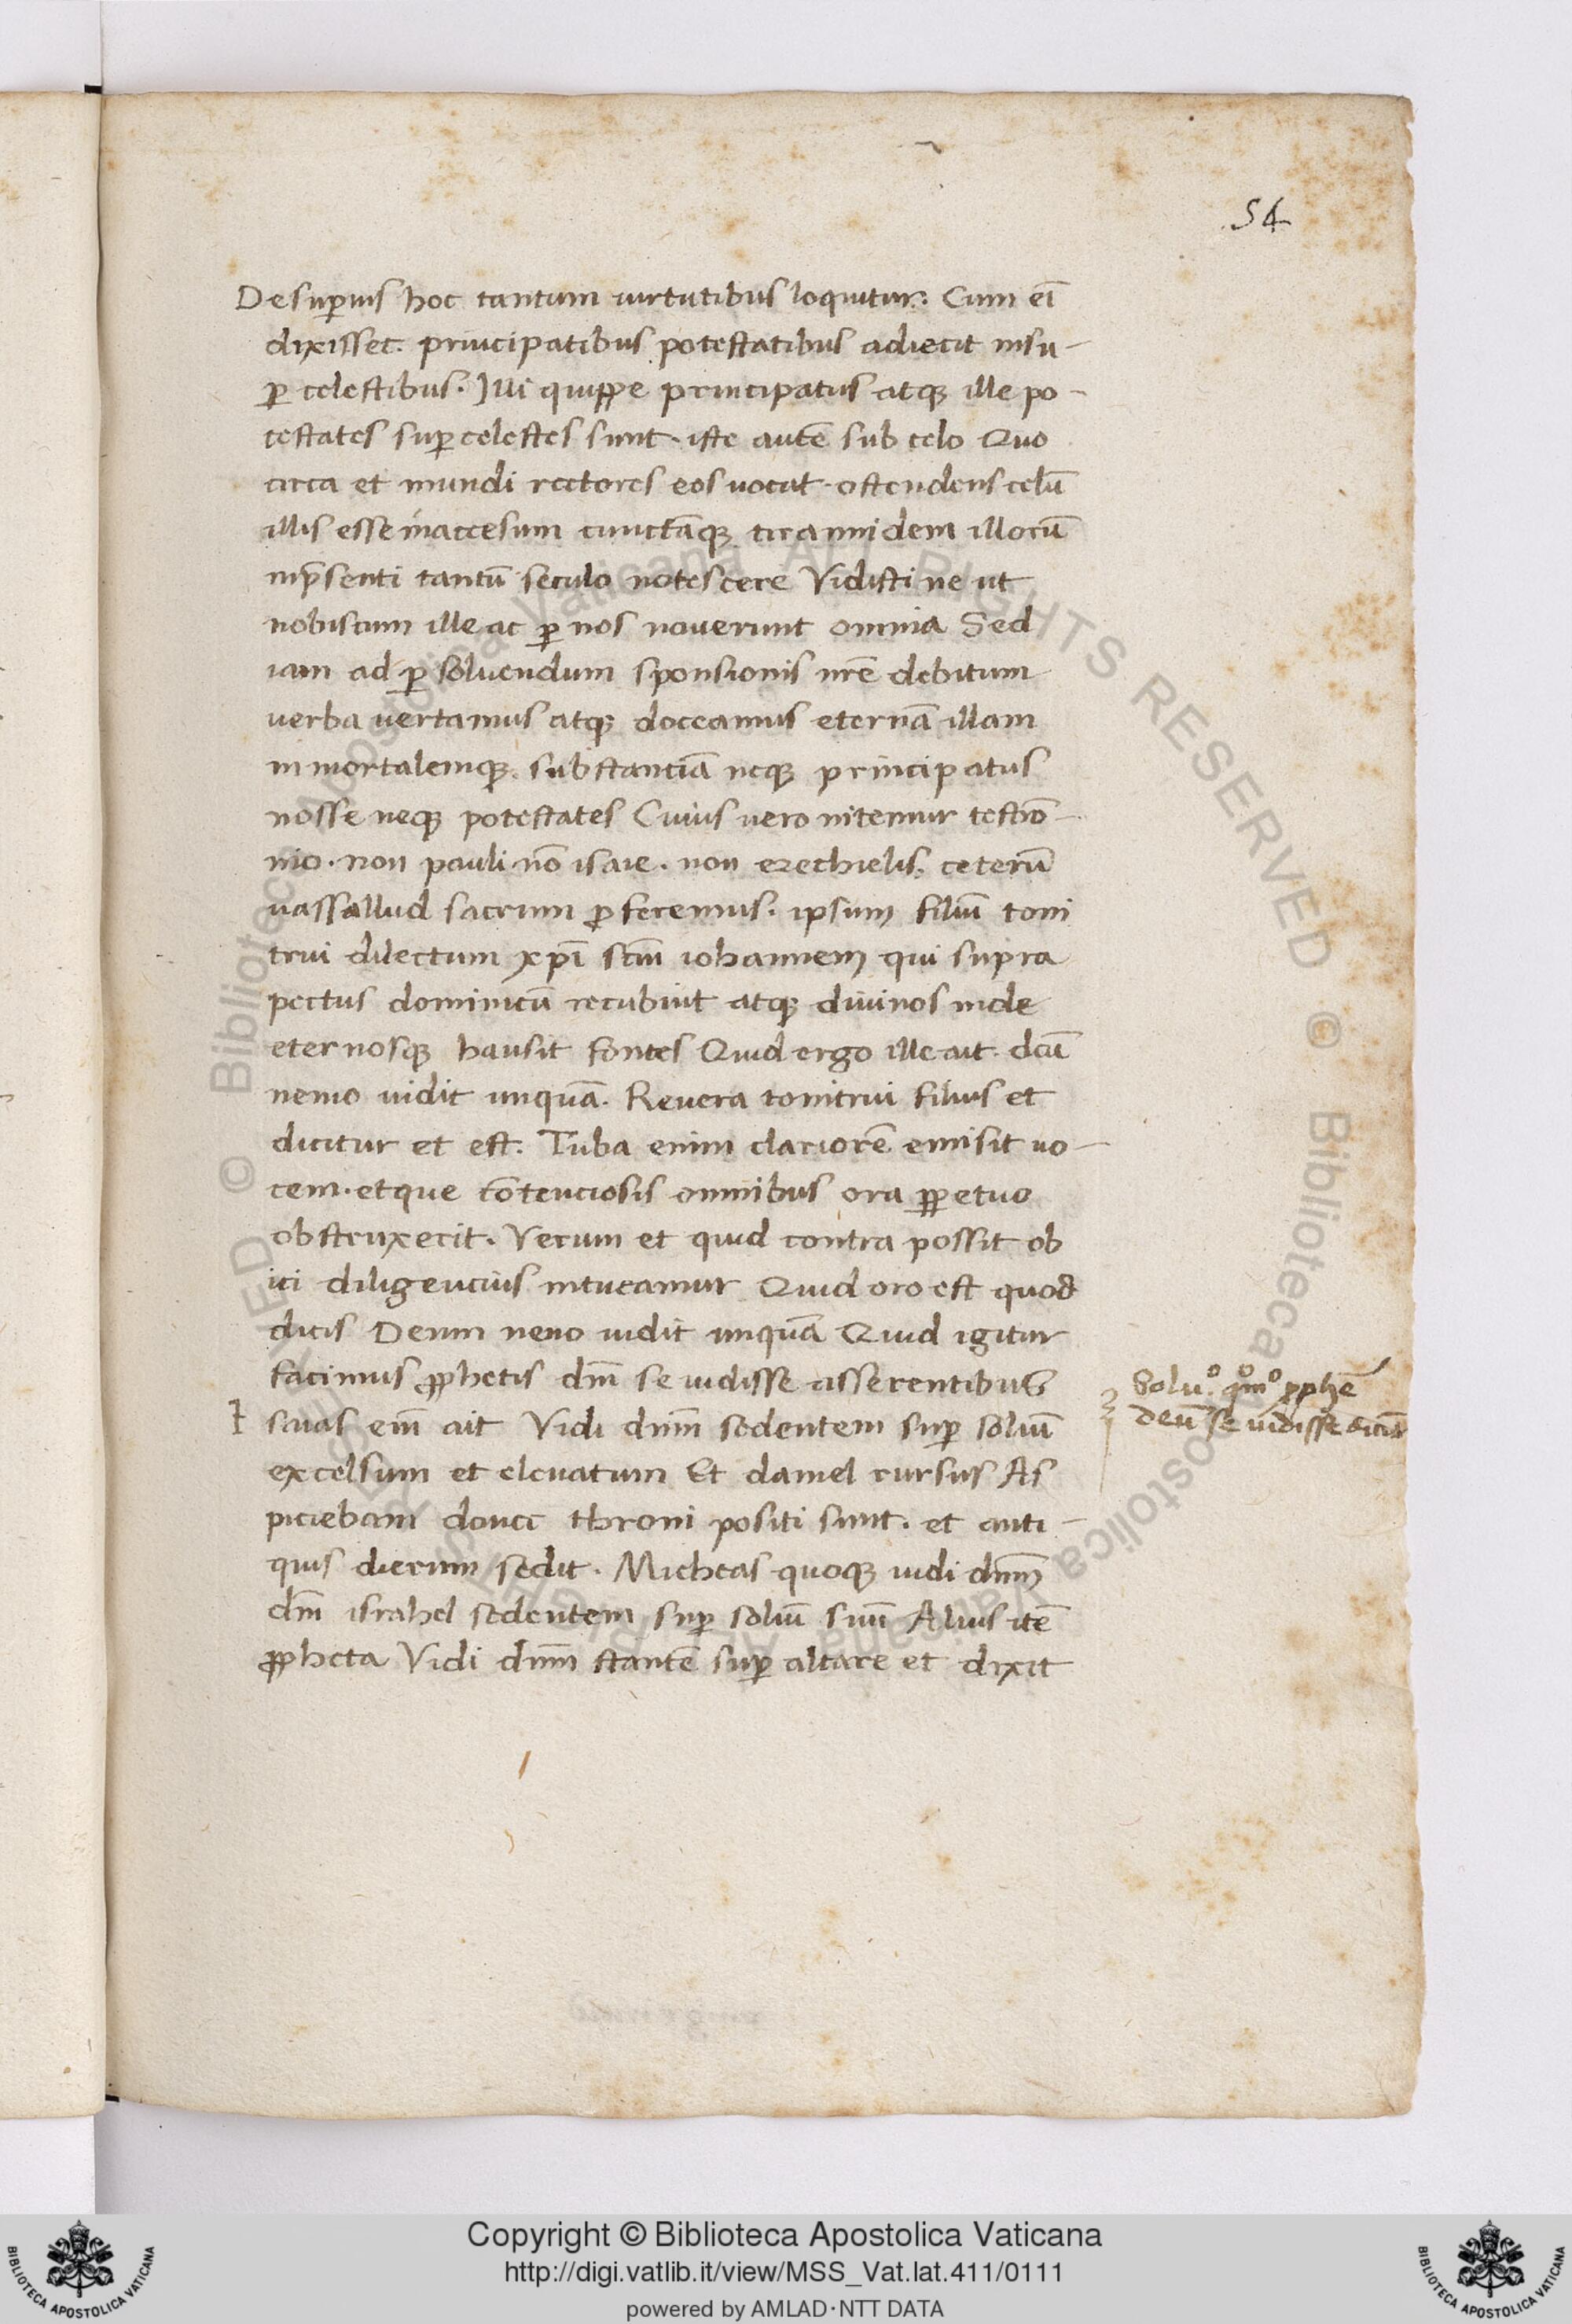 54
De sup̲ius hoc tantum uirtutibus loquitur. Cum ei̅
dixisset. principatibus potestatibus adiecit insu-
p̲ celestibus. Illi quippe principatus atq; ille po-
testates sup̲ celestes sunt. iste aute̅ sub celo Quo
circa et mundi rectores eos uocat. ostendens celu̅
illis esse inaccesum cuncta̅q; tirannidem illoru̅
inp̅senti tantu̅ seculo notescere Vidisti ne ut
nobiscum ille ac p̲ nos nouerunt omnia Sed
iam ad p̲ soluendum sponsionis nr̅e debitum
uerba uertamus atq; doceamus eterna̅ illam
inmortalemq; substancia̅ neq; principatus
nosse neq; potestates Cuius uero nitemur testio̅-
nio. non pauli no̅ isaie. non ezechielis. ceteru̅
uassallud sacrum p̲feremus. ipsum filiu̅ toni
trui dilectum xpi̅ scm̅ iohannem qui supra
pectus dominicu̅ recubuit atq; diuinos inde
eternosq; hausit fontes Quid ergo ille ait. deu̅
nemo uidit unqua̅. Reuera tonitrui filius et
dicitur et est. Tuba enim clariore̅ emisit uo-
cem. etque co̅tenciosis omnibus ora p̲petuo
obstruxerit. Verum et quid contra possit ob
iici diligencius intueamur Quid oro est quod
dicis Deum nemo uidit unqua̅ Quid igitur
facimus p̲phetis dm̅ se uidisse asserentibus
I saias em̅ ait Vidi dnm̅ sedentem sup̲ soliu̅
excelsum et eleuatum Et daniel rursus As
piciebam donec throni positi sunt. et anti-
quis dierum sedit. Micheas quoq; uidi dnm̅
dm̅ israhel sedentem sup̲ soliu̅ suu̅ Alius ite̅
p̲pheta Vidi dnm̅ stante̅ sup̲ altare et dixit
Soluº. qºmº p̲phe̅
deu̅ se uidisse dicu̅t
© Biblioteca Apostolica Vaticana ALL RIGHTS RESERVED © Biblioteca Apostolica Vaticana ALL RIGHTS RESERVED
Copyright © Biblioteca Apostolica Vaticana
http://digi.vatlib.it/view/MSS_Vat.lat.411/0111
powered by AMLAD·NTT DATA
BIBLIOTECA APOSTOLICA VATICANA
BIBLIOTECA APOSTOLICA VATICANA